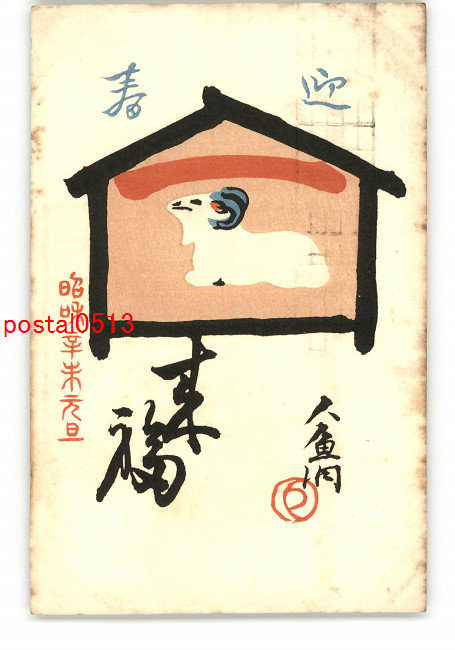 迎
寿
昭和辛未元旦
来福
大魚洞
postal0513